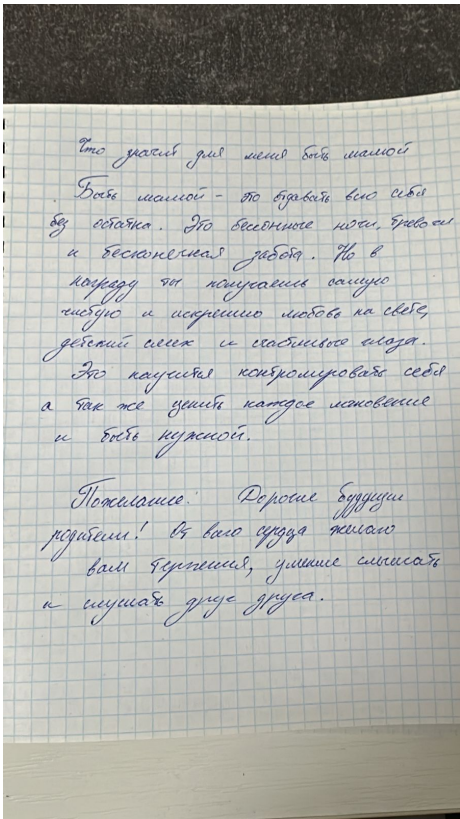 Что значит для меня быть мамой
Быть мамой - это отдавать всю себя
без остатка. Это бессонные ночи, тревоги
и бесконечная забота. Но в
награду ты получаешь самую
чистую и искреннюю любовь на свете,
детский смех и счастливые глаза.
Это научится контролировать себя
а так же ценить каждое мгновение
и быть нужной.
Пожелание: Дорогие будущие
родители! От всего сердца желаю
вам терпения, умение слышать
и слушать друг друга.